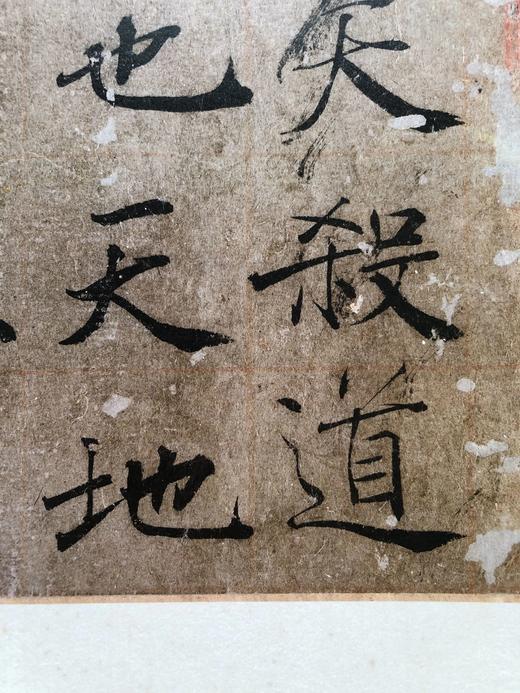 天殺道
也天地